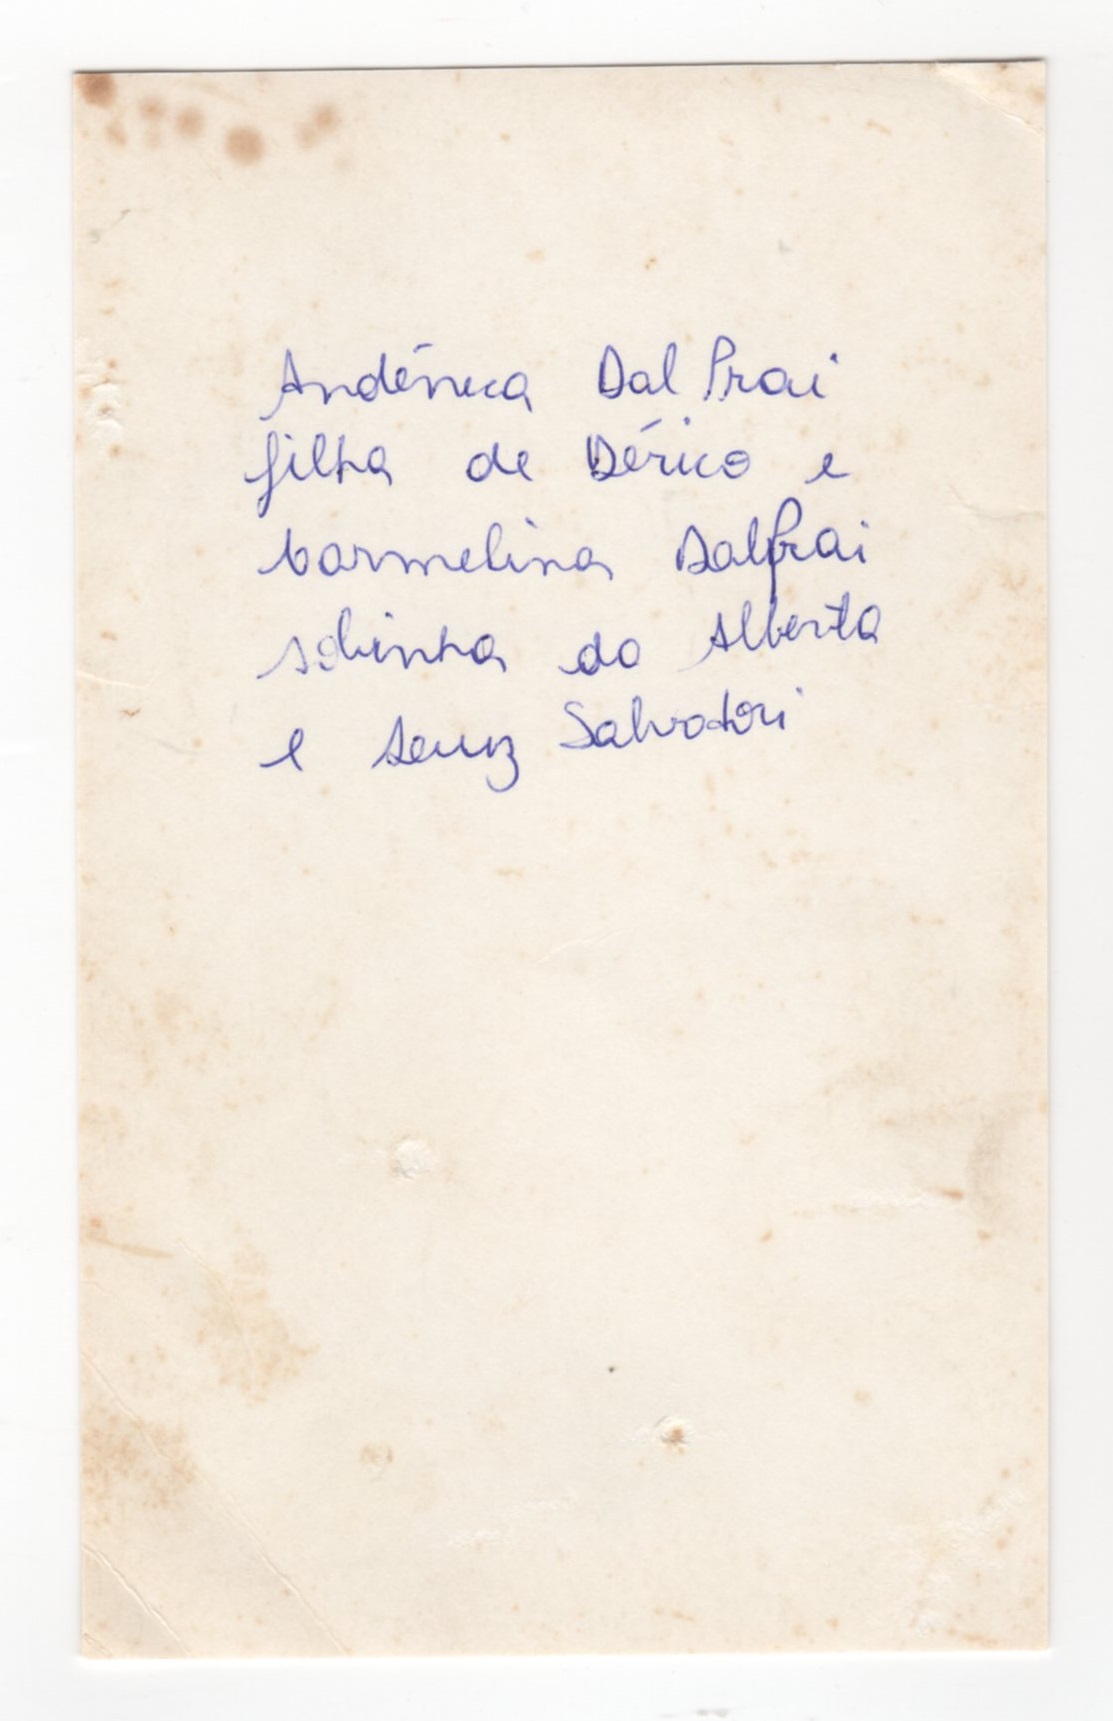 Andéneca Dal Prai
filha de Dérico e
Carmelina Dalprai
sobinha do Alberta
e Salvadori